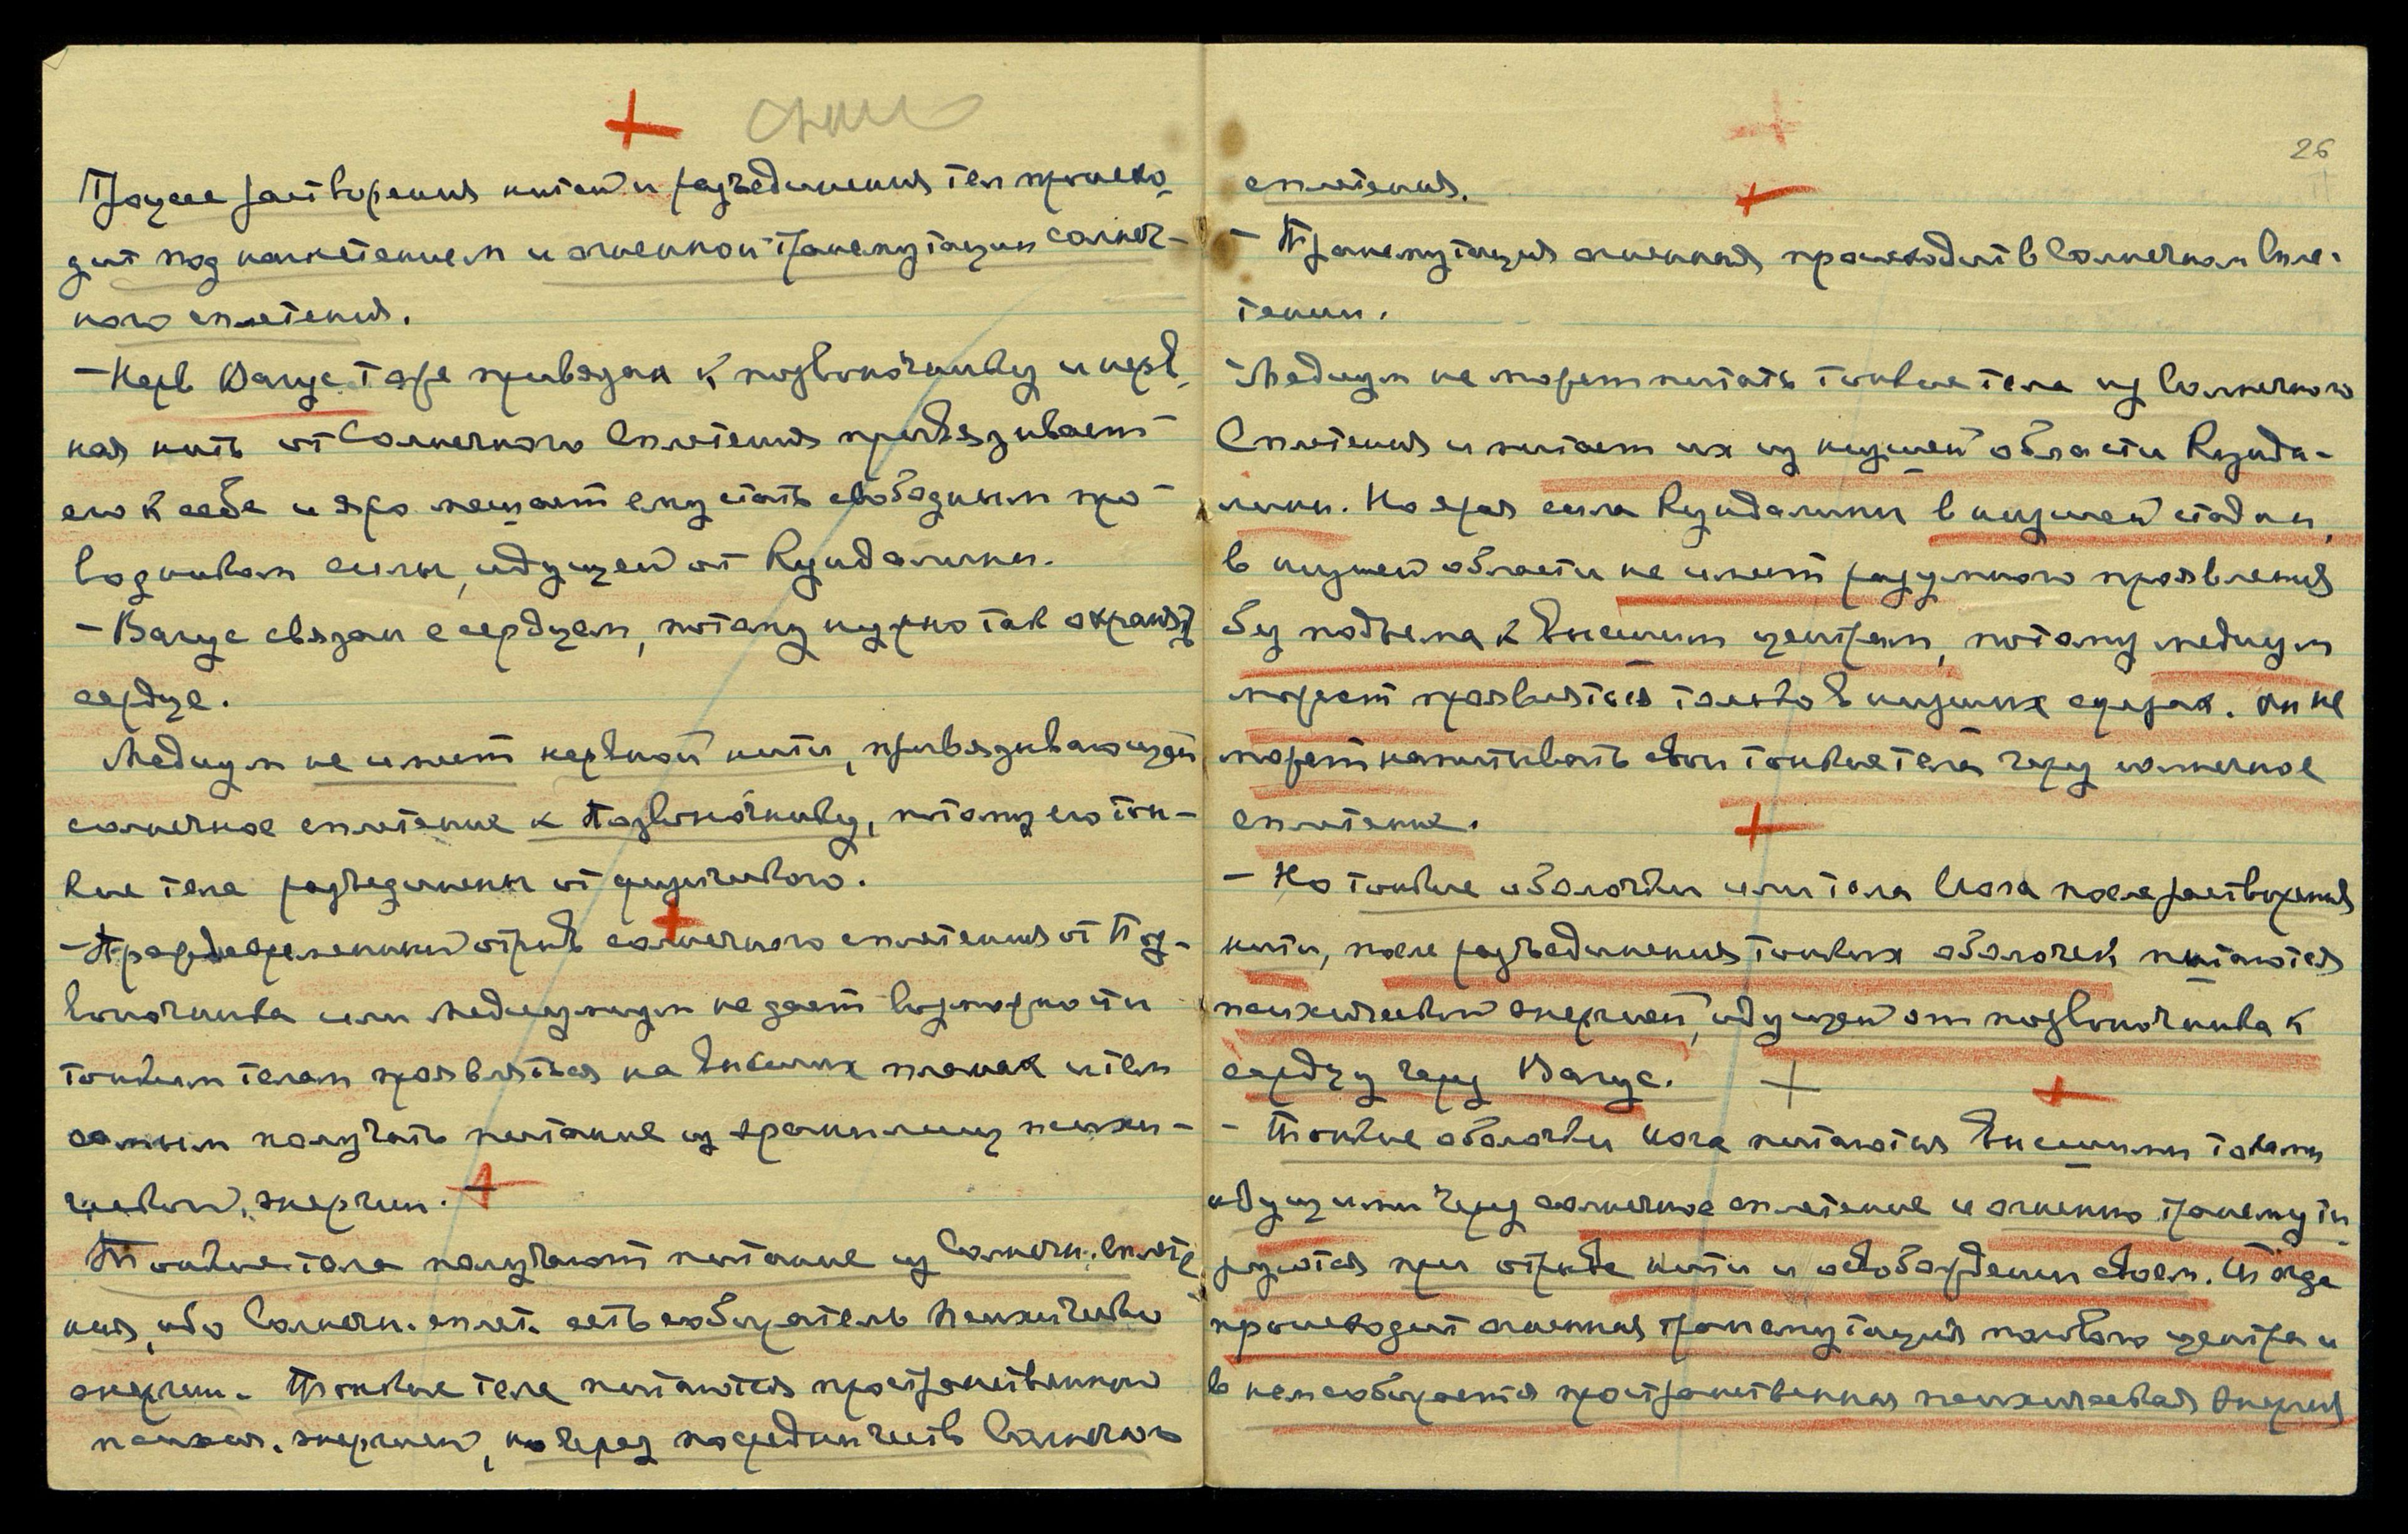 Процесс растворения нитей и разъединения тел происхо-
дит под нагнетением и огненной трансмутации солнеч-
ного сплетения.
— Нерв Вагус тоже привязан к позвоночнику и нерв-
ная нить от Солнечного Сплетения привязывает
его к себе и яро мешает ему стать свободным про-
водником силы, идущей от Кундалини.
— Вагус связан с сердцем, потому нужно так охранять
сердце.
Медиум не имеет нервной нити, привязывающей
солнечное сплетение к Позвоночнику, потому его тон-
кие тела разъединены от физического.
— Преждевременный отрыв солнечного сплетения от Поз-
воночника или медиумизм не дает возможности
тонким телам проявляться на Высших планах и тем
самым получать питание из хранилищ психи-
ческой энергии.
Тонкие тела получают питание из Солнечн. сплете-
ния, ибо Солнечн. сплет. есть собиратель психической
энергии. Тонкие тела питаются пространственной
психич. энергией, но через посредничеств Солнечного
26
сплетения.
— Трансмутация огненная происходит в Солнечном Спле-
тении.
— Медиум не может питать тонкие тела из Солнечного
Сплетения и питает их из низшей области Кунда-
лини. Но ярая сила Кундалини в низшей стадии,
в низшей области не имеет разумного проявления
без подъема к Высшим центрам, потому медиум
может проявляться только в низших сферах. Он не
может напитывать свои тонкие тела через солнечное
сплетение.
— Но тонкие оболочки или тела Йога после растворения
нити, после разъединения тонких оболочек питаются
психической энергией, идущей от позвоночника к
сердцу через Вагус.
— Тонкие оболочки Йога питаются Высшими токами
идущими через солнечное сплетение и огненно трансмути-
руются при отрыве нити и освобождении своем. Тогда
происходит огненная трансмутация такового центра и
в нем собирается пространственная психическая энергия